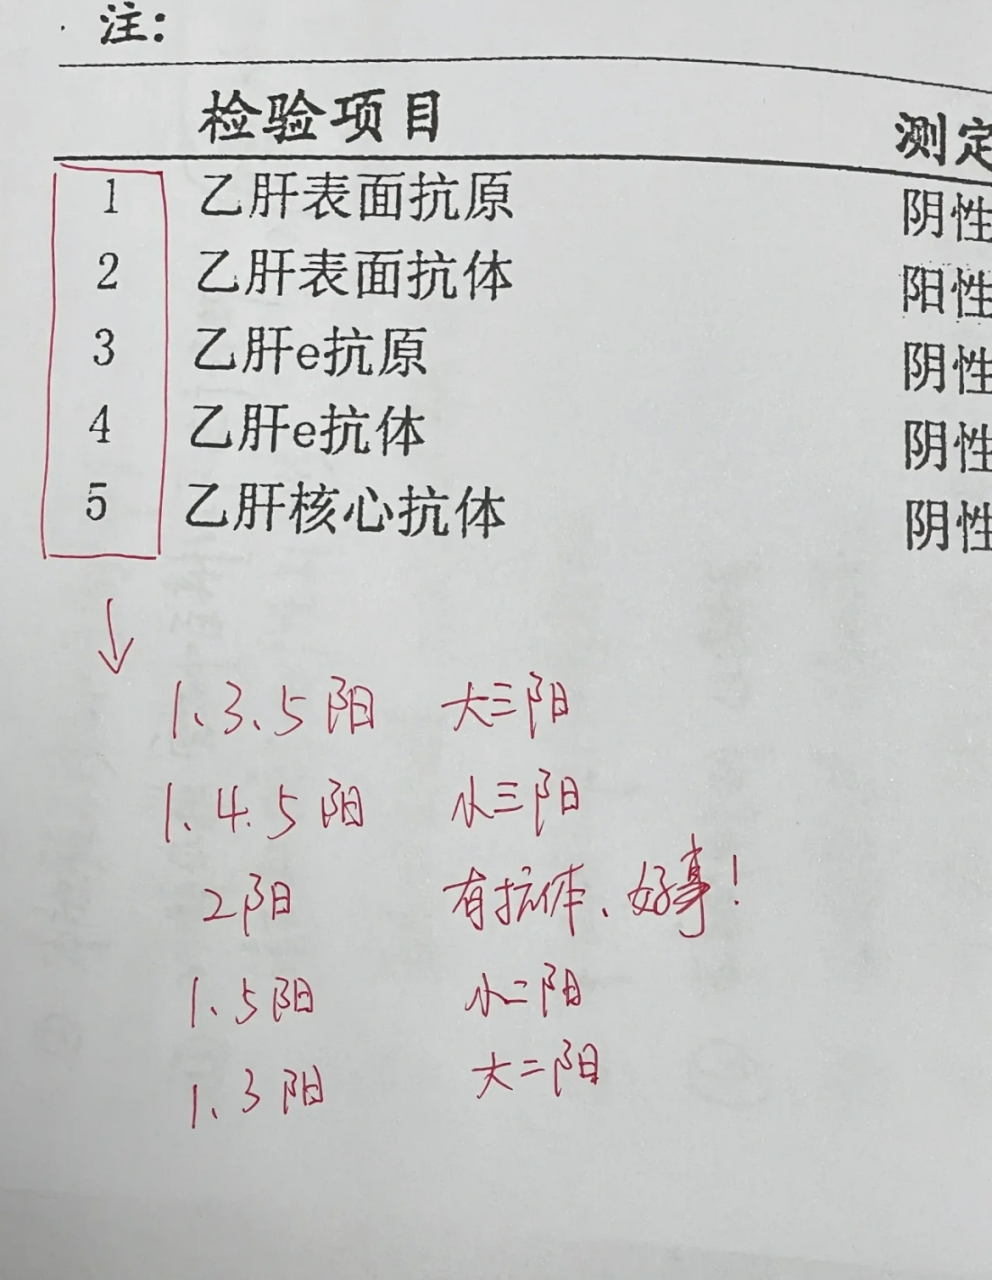 注:
检验项目 测定
1 乙肝表面抗原 阴性
2 乙肝表面抗体 阳性
3 乙肝e抗原 阴性
4 乙肝e抗体 阴性
5 乙肝核心抗体 阴性
1.3.5阳 大三阳
1.4.5阳 小三阳
2阳 有抗体、好事!
1.5阳 小二阳
1.3阳 大二阳